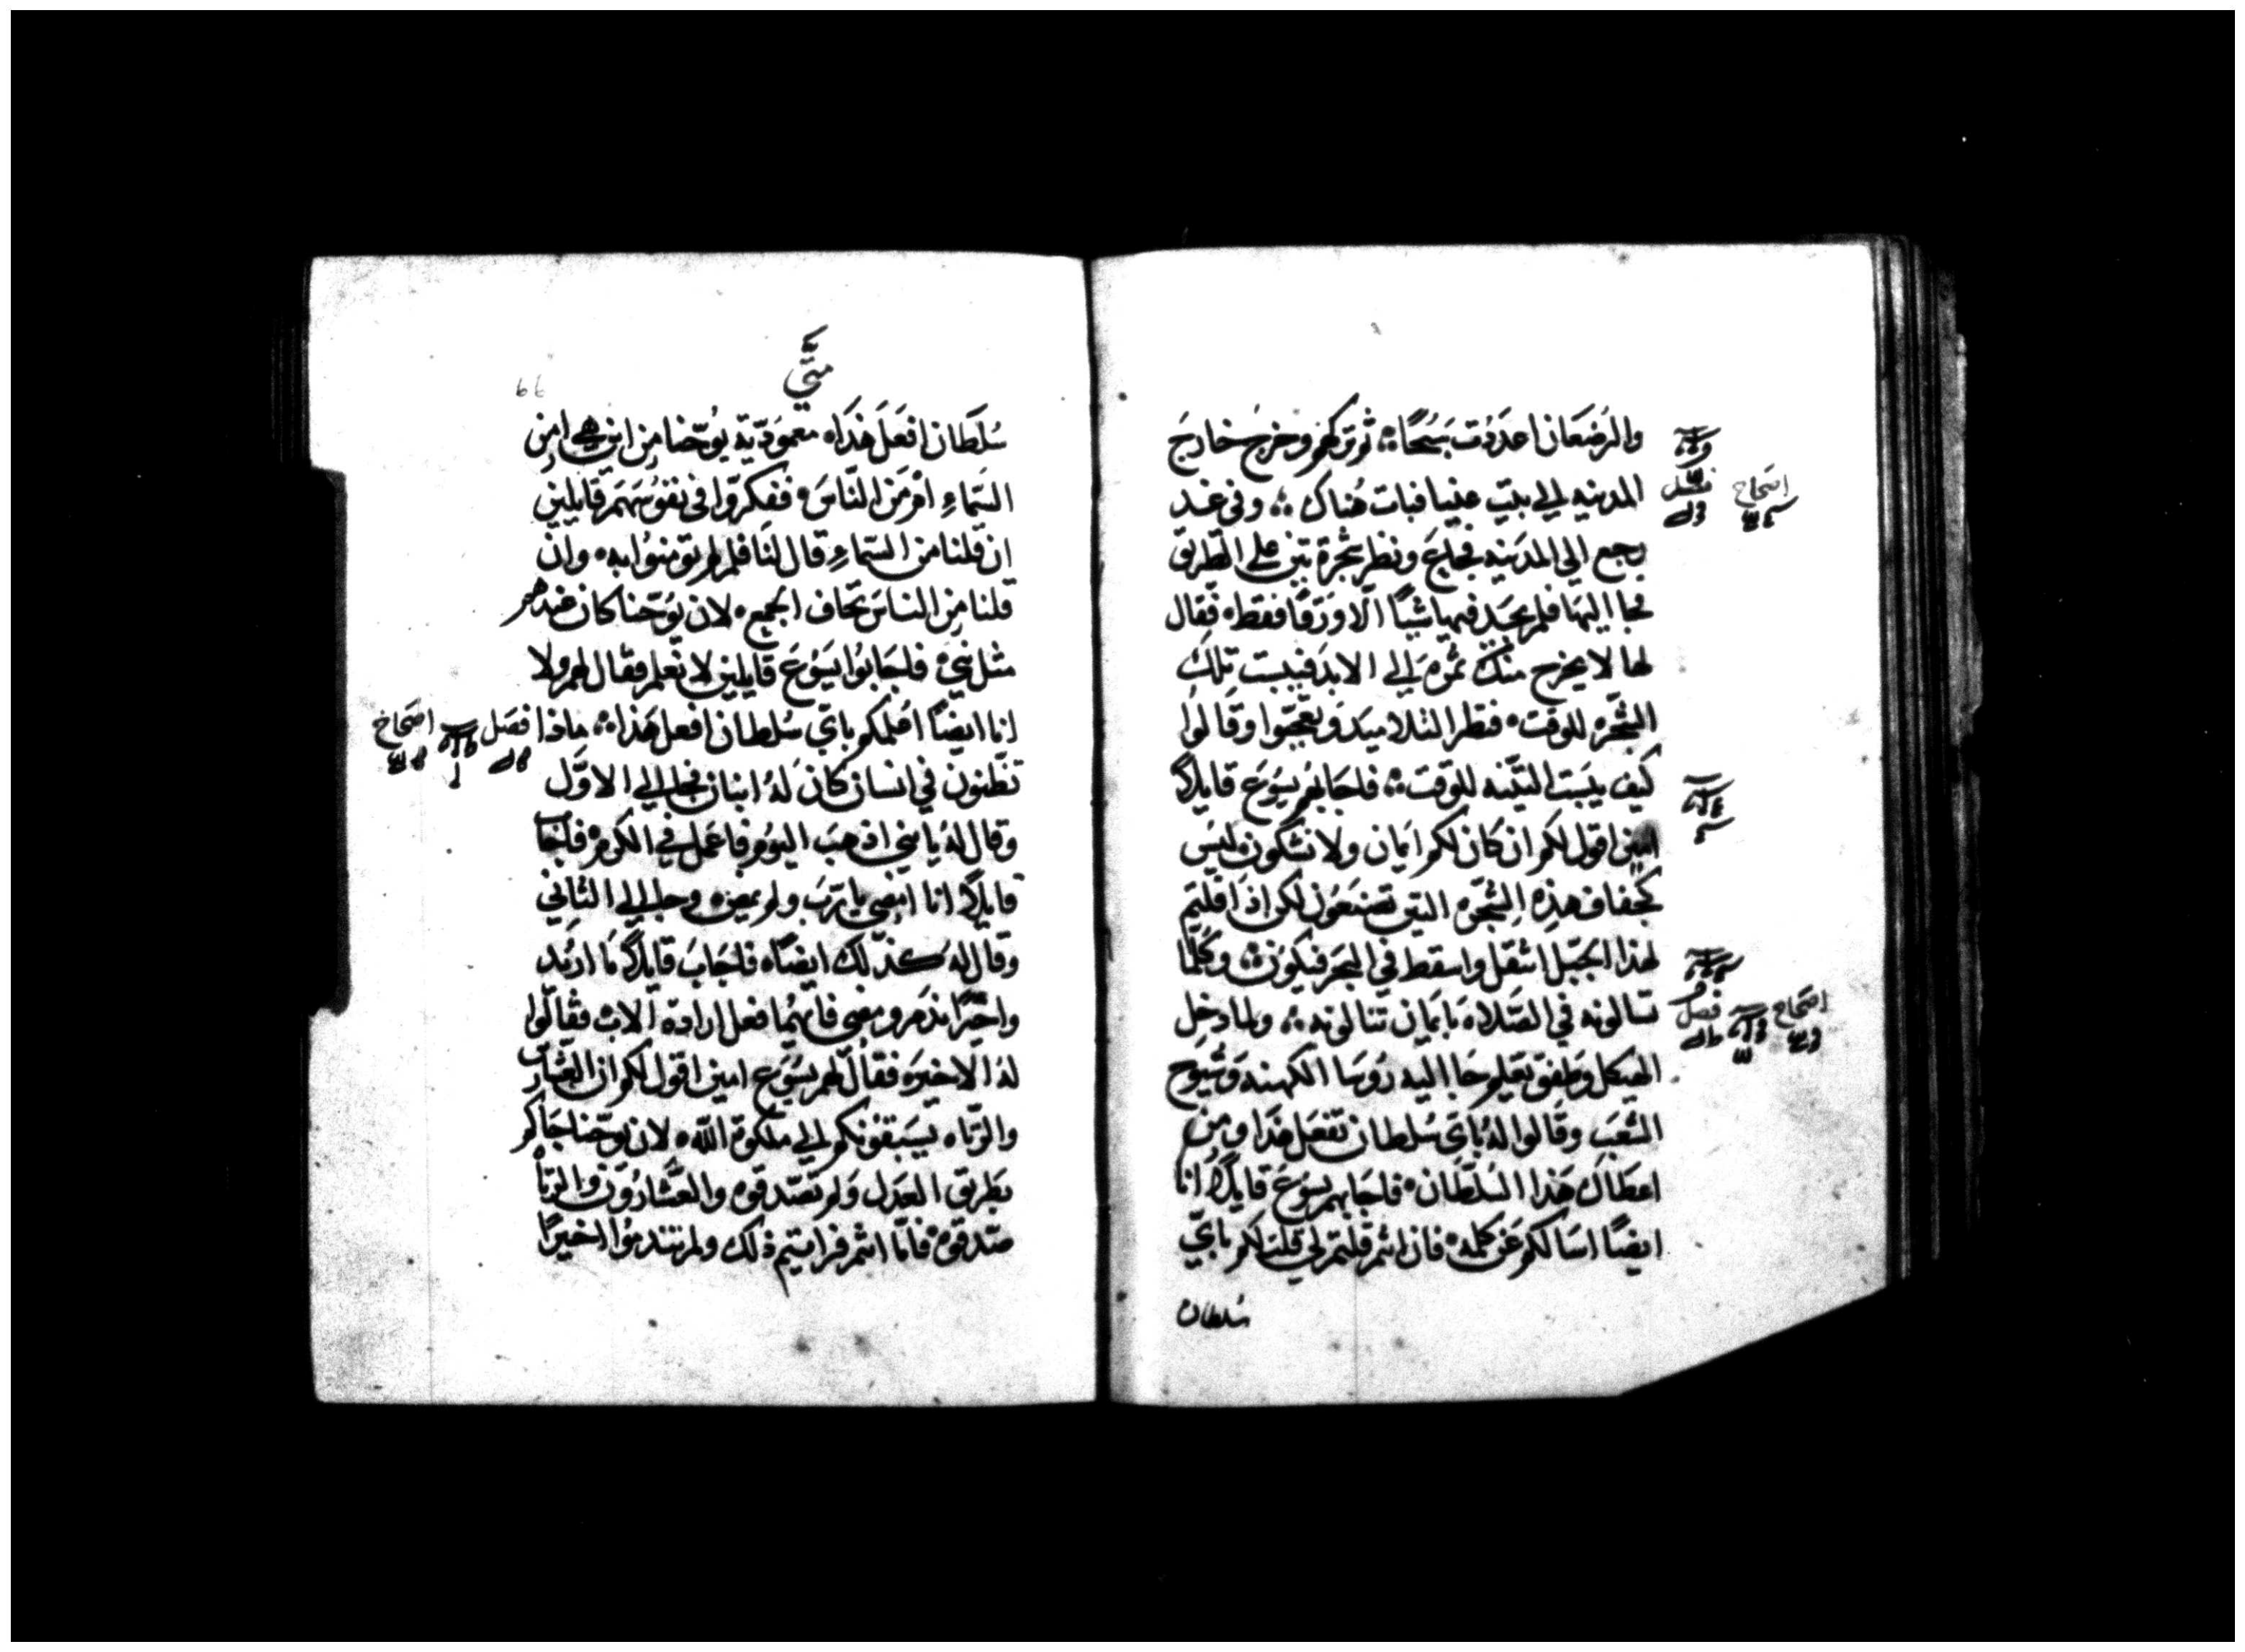 والرضعان اعددت سبحًا ثم تركهم وخرج خارج
المدينه الي بيت عنيا فبات هناك وفي غد
رجع الي المدينه فجاع ونظر شجرة تين علي الطريق
فجا اليها فلم يجد فيها شيًا الا ورقًا فقط فقال
لها لا يخرج منك ثمره الي الابد فيبست تلك
الشجره للوقت فنظر التلاميد وتعجبوا وقالوا
كيف يبست التينه للوقت فاجابهم يسوع قايلاً
امين اقول لكم ان كان لكم ايمان ولا تشكون ليس
كجفاف هذه الشجره التين تصنعون لكن اذا قلتم
لهذا الجبل انتقل واسقط في البحر فيكون وكلما
تسالونه في الصلاه بايمان تنالونه ولما دخل
الهيكل وطفق يعلم جا اليه روسا الكهنه وشيوخ
الشعب وقالوا له باي سلطان تفعل هذا ومن
اعطاك هذا السلطان فاجابهم يسوع قايلاً انا
ايضًا اسالكم عن كلمه فان انتم قلتم لي قلت لكم باي
سلطان
فصل
اصحاح
فصل
اصحاح
متي
سلطان افعل هذا معمودية يوحنا من اين هي امن
السماء ام من الناس ففكروا في نفوسهم قايلين
ان قلنا من السماء قال لنا فلم لم تومنوا به وان
قلنا من الناس نخاف الجمع لان يوحنا كان عندهم
مثل نبي فاجابوا يسوع قايلين لا نعلم فقال لهم ولا
انا ايضًا اعلمكم باي سلطان افعل هذا ماذا
تظنون في انسان كان له ابنان فجا الي الاول
وقال له يا بني اذهب اليوم فاعمل في الكرم فاجاب
قايلاً انا امضي يا رب ولم يمض وجا الي الثاني
وقال له كذلك ايضًا فاجاب قايلاً ما اريد
واخيرًا ندم ومضي فايهما فعل ارادة الاب فقالوا
له الاخير فقال لهم يسوع امين اقول لكم ان العشارين
والزناه يسبقونكم الي ملكوة الله لان يوحنا جاكم
بطريق العدل ولم تصدقوه والعشارون والزناه
صدقوه فاما انتم فرايتم ذلك ولم تندموا اخيرًا
فصل
اصحاح